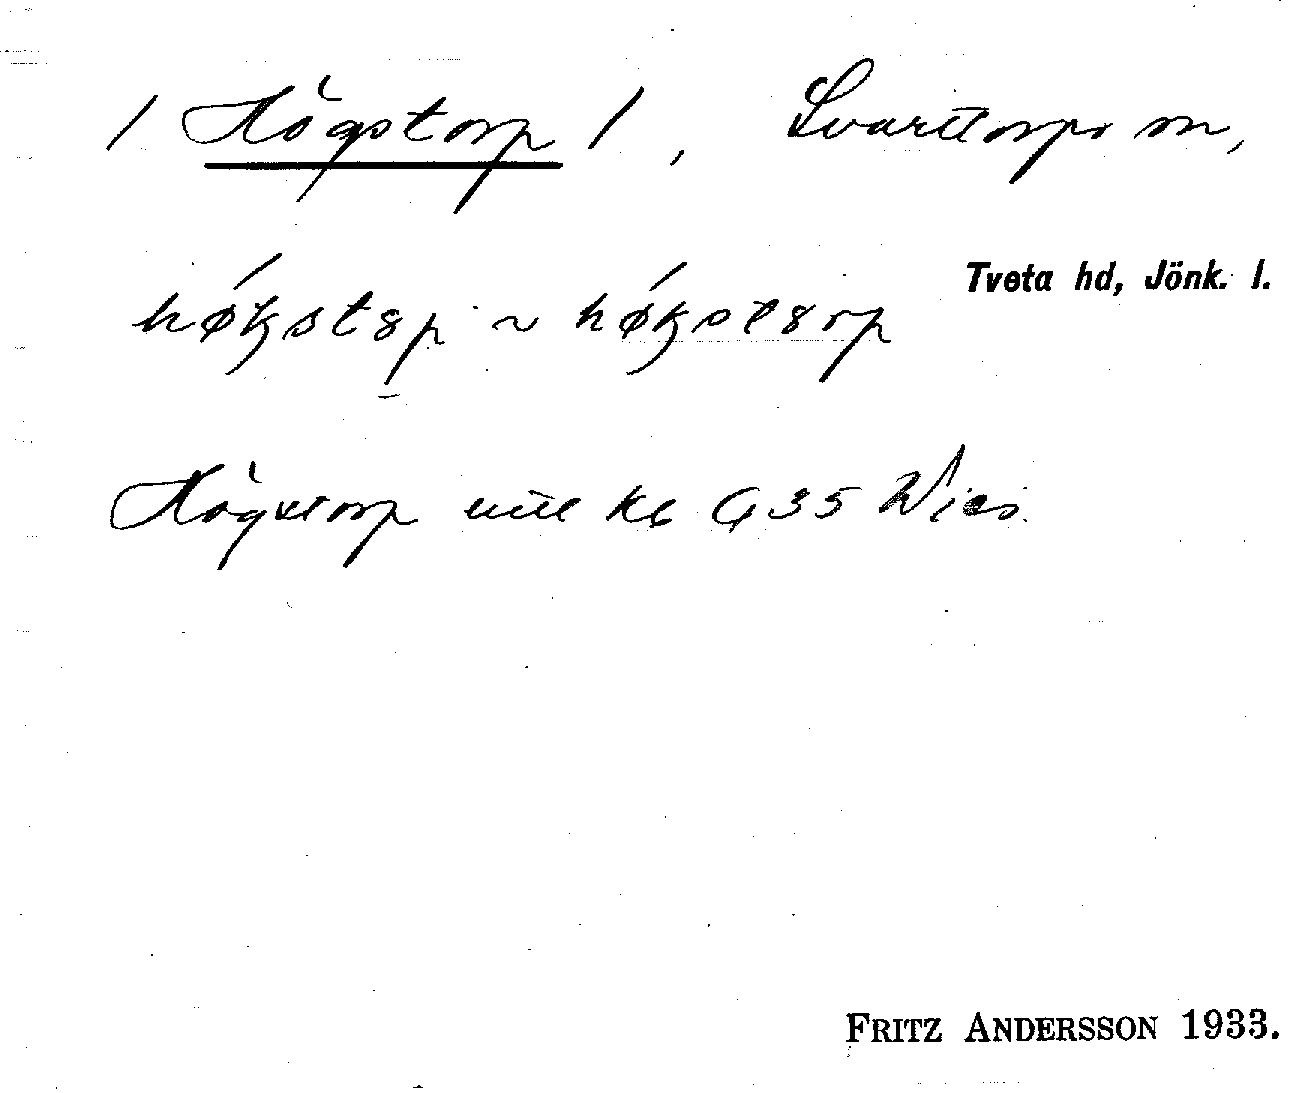 / Högstorp /, Svarttorps sn,
Tveta hd, Jönk. l.
høkstȣp ~ høkstȣrp
Högstorp
FRITZ ANDERSSON 1933.